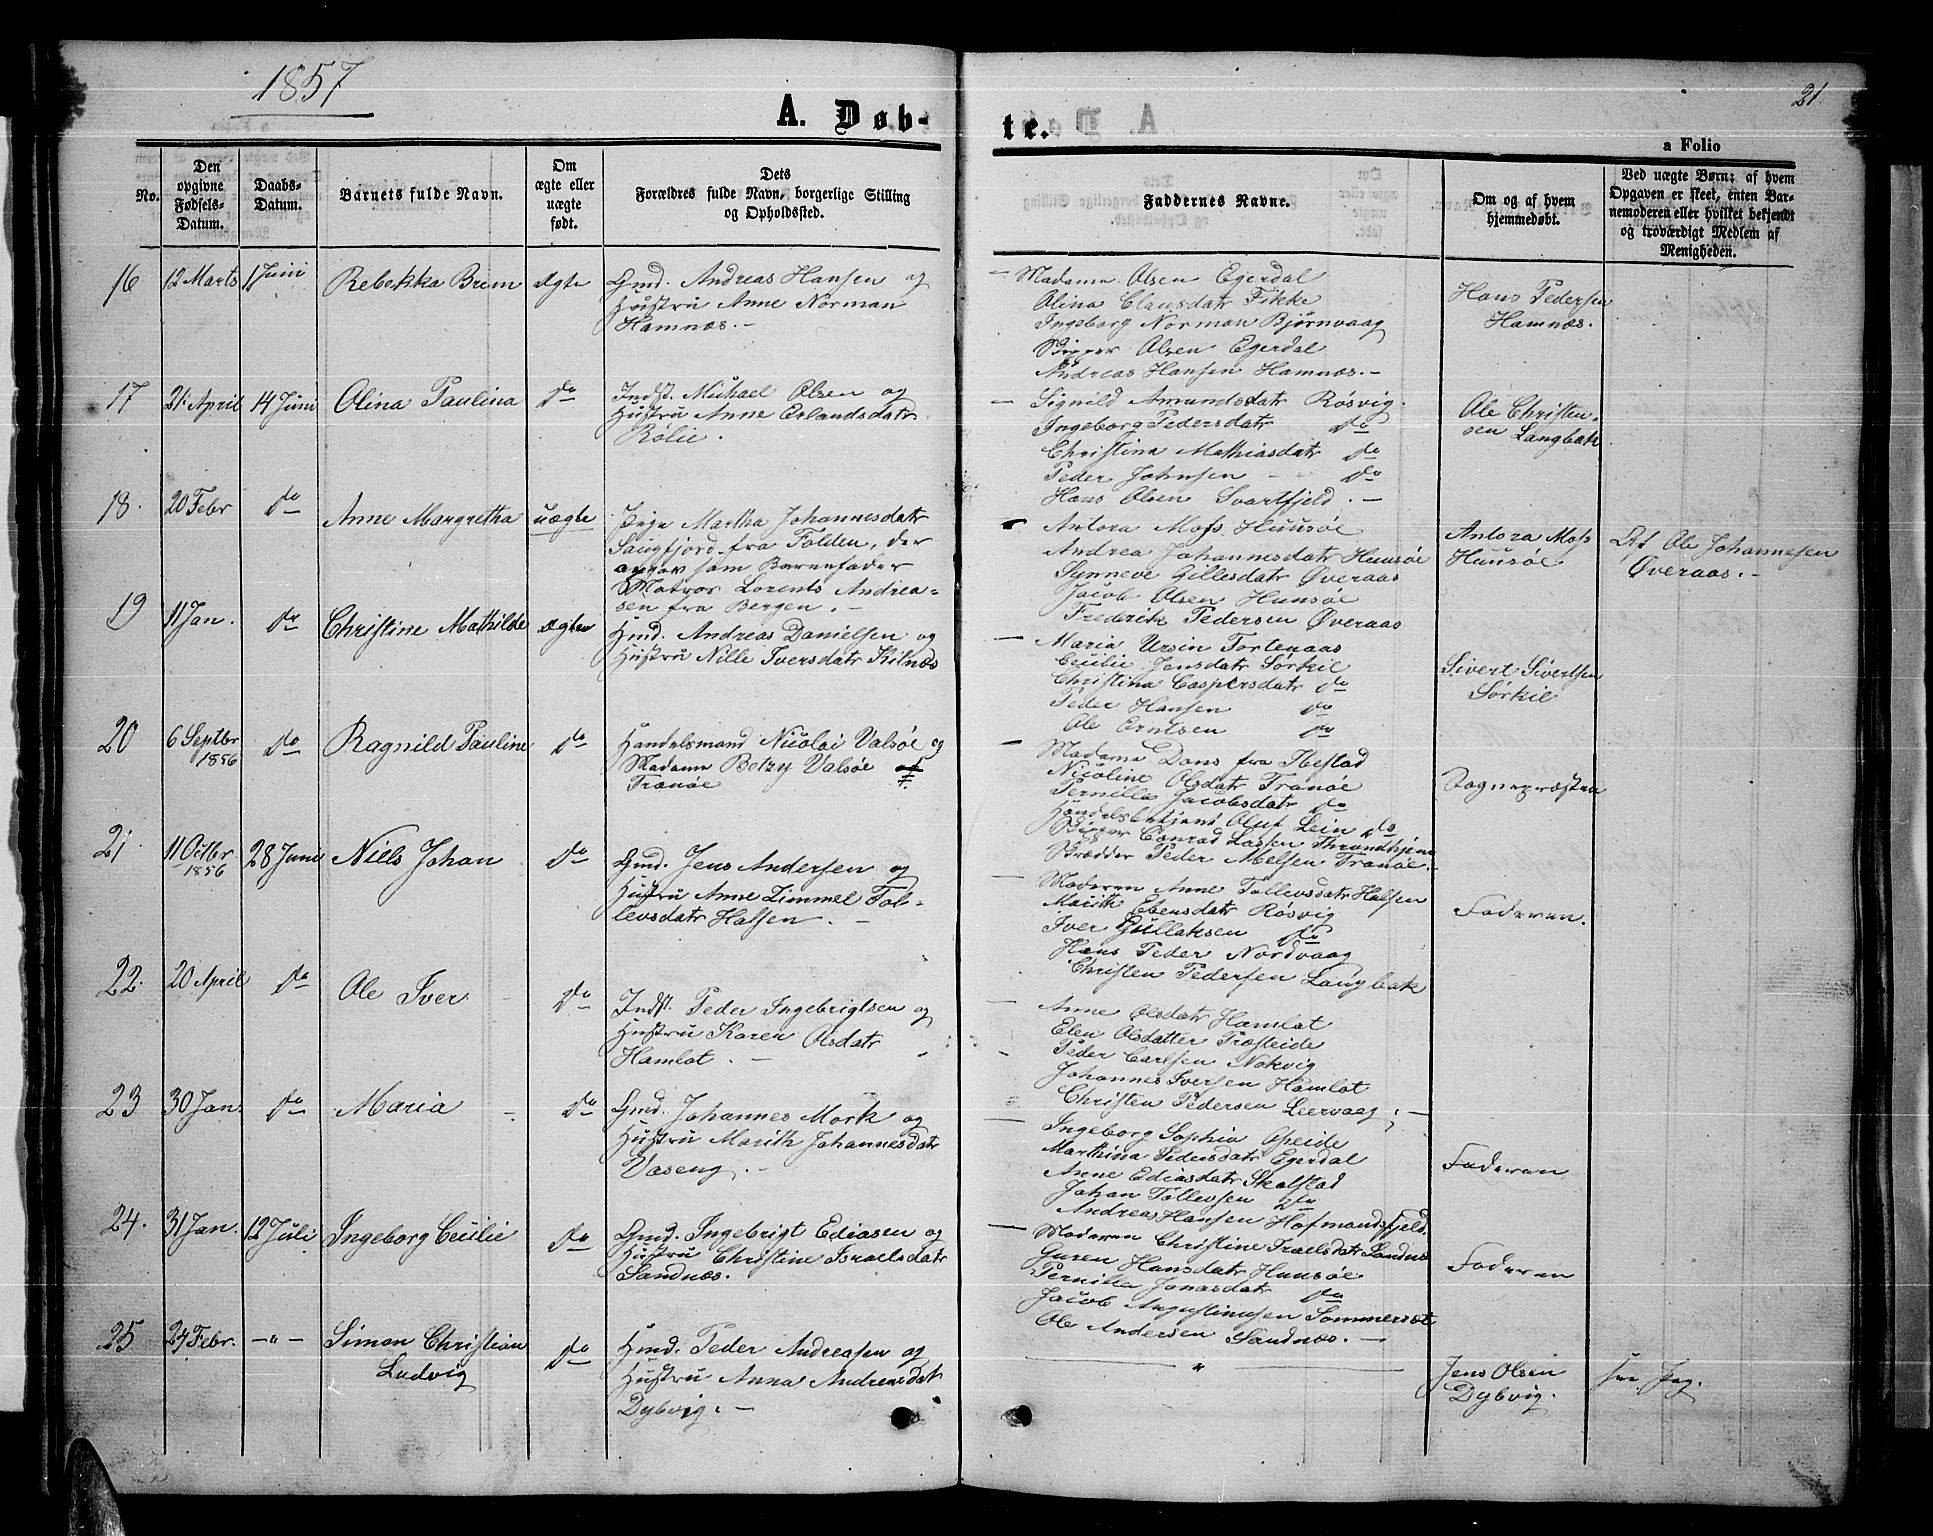 1857
21
A. Døb-
te.
a Folio
No.
Den
opgivne
Fødsels-
Datum.
Daabs-
Datum.
Barnets fulde Navn.
Om
ægte eller
uægte
født.
Dets
Forældres fulde Navn, borgerlige Stilling
og Opholdssted.
Faddernes Navne.
Om og af hvem
hjemmedøbt.
Ved uægte Børn: af hvem
Opgaven er skeet, enten Bar-
nemoderen eller hvilket bekjendt
og troværdigt Medlem af
Menigheden.
16
12 Marts
1 Juni
Rebekka Brem
Ægte
Gmd. Andreas Hansen og
Hustru Anne Norman
Hamnæs. —
— Madame Olsen Egerdal
Olina Clausdatr Fikke
Ingeborg Norman Bjørnvaag
Skipper Olsen Egerdal
Andreas Hansen Hamnæs. —
Hans Pedersen
Hamnæs.
17
21 April
14 Juni
Olina Paulina
do
Indst. Michael Olsen og
Hustru Anne Erlandsdatr
Rølie.
— Signild Amundsdatr Røsvig.
Ingeborg Pedersdatr do
Christina Mathiasdatr do
Peder Johnsen do
Hans Olsen Svartfjeld. —
Ole Christen-
sen Langbak
18.
20 Febr
do
Anne Margretha
uægte
Pige Martha Johannesdatr
Saugfjord fra Folden, der
opgav som Barnefader
Matros Lorents Andrea-
sen fra Bergen. —
Antora Moss Huusøe
Andrea Johannesdatr Huusøe
Synneve Gillesdatr Øveraas
Jacob Olsen Huusøe
Frederik Pedersen Øveraas
Antora Moss
Huusøe
Af Ole Johannesen
Øveraas. —
19
11 Jan.
do
Christine Mathilde
ægte
Gmd. Andreas Danielsen og
Hustru Nille Iversdatr Kilnæs
— Maria Ursin Fortenaas
Cecilie Jensdatr Sørkil
Christina Caspersdatr do
Peder Hansen do
Ole Erntsen do
Sivert Sivertsen
Sørkil
20
6 Septbr
1856
do
Ragnild Pauline
do
Handelsmand Nicolai Valsøe og
Madame Betzy Valsøe
Tranøe
— Madame Dons fra Ibestad
Nicoline Olsdatr Tranøe
Pernilla Jacobsdatr do
Handelsbetjent Oluf Lein do
Skipper Conrad Lassen Throndhjem
Skrædder Peder Melsen Tranøe.
Sognepræsten
21.
11 Octbr
1856
28 Juni
Niels Johan
do
Gmd. Jens Andersen og
Hustru Anne Zimmel Tol-
levsdatr Halsen. —
— Moderen Anne Tollevsdatr Halsen
Marith Ebensdatr Røsvig
Iver Gullaksen do
Hans Peder Nordvaag
Christen Pedersen Langbak
Faderen.
22.
20 April
do
Ole Iver
do
Indst. Peder Ingebrigtsen og
Hustru Karen Olsdatr
Hamlot. —
— Anne Olsdatr Hamlot
Elen Olsdatter Trøsteide
Peder Carlsen Nokvig
Johannes Iversen Hamlot
Christen Pedersen Leervaag; —
23
30 Jan.
do
Maria
do
Gmd. Johannes Mork og
Hustru Marith Johannesdatr
Vaseng. —
— Ingeborg Sophia Opeide
Marthina Pedersdatr Egerdal
Anne Ediasdatr Skalstad
Johan Tollevsen do
Andreas Hansen Hofmandsfjeld.
Faderen
24.
31 Jan.
12 Juli
Ingeborg Cecilie
do
Gmd. Ingebrigt Ediasen og
Hustru Christine Israelsdatr
Sandnæs.
— Moderen Christine Israelsdatr Sandnæs
Guren Hansdatr Huusøe
Pernilla Jonasdatr do
Jacob Augustinusen Sommerset
Ole Andersen Sandnæs. —
Faderen
25
24 Febr.
— " —
Simon Christian
Ludvig
do
Gmd. Peder Andreasen og
Hustru Anna Andreasdat
Dybvig. —
"
Jens Olsen
Dybvig.